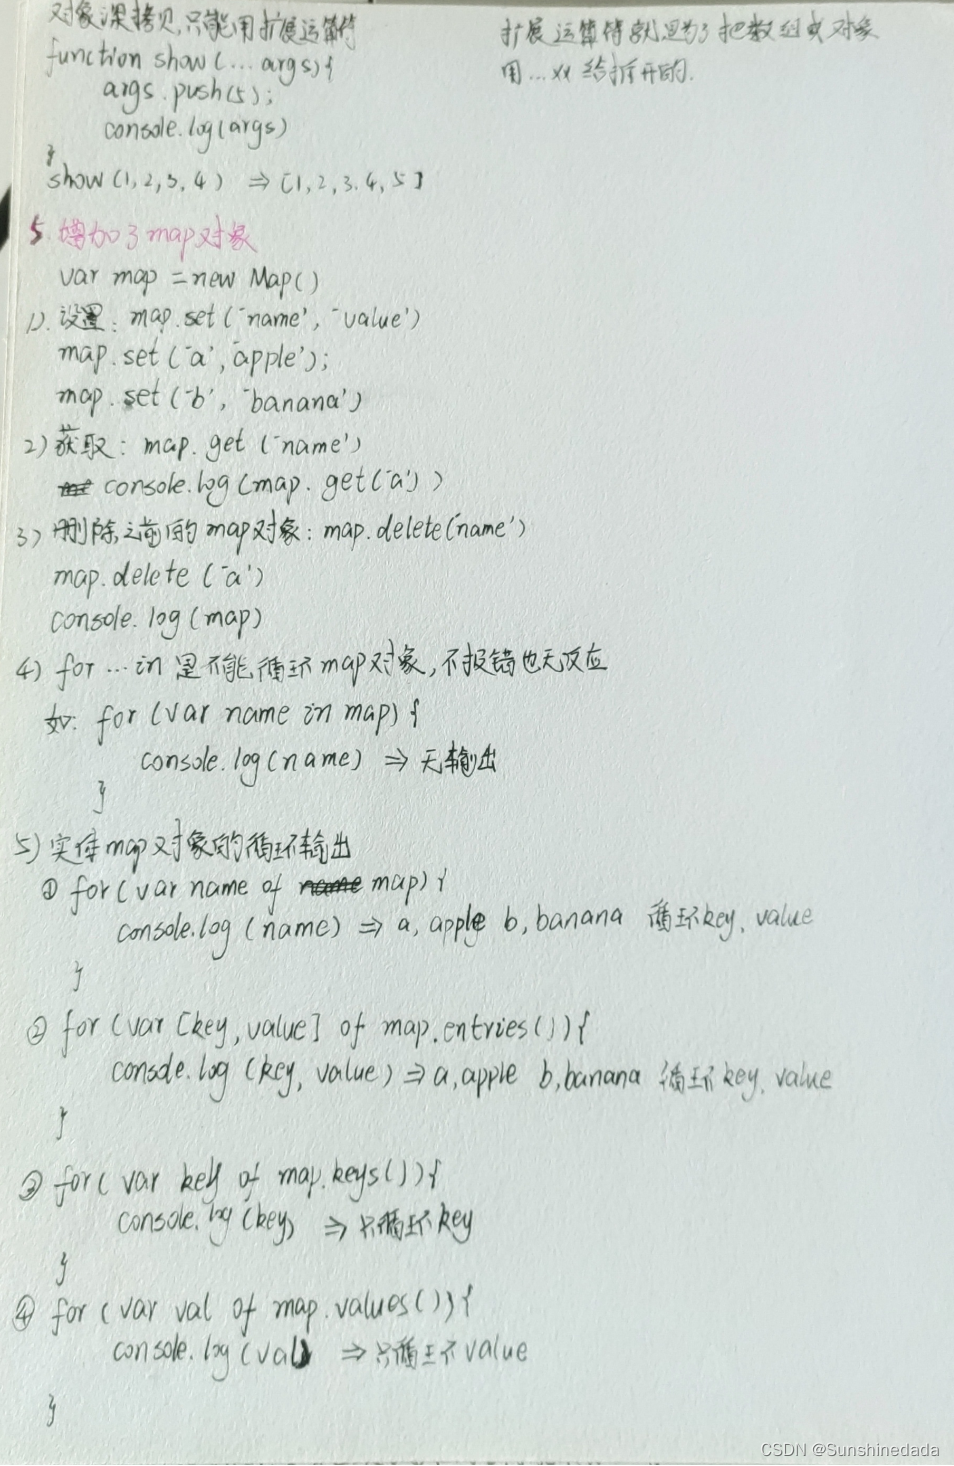 对象深拷贝,只能用扩展运算符
扩展运算符就是为了把数组或对象
用...xx给拆开的.
function show(...args){
args.push(5);
console.log(args)
}
show(1,2,3,4) ⇒ [1,2,3.4,5]
5.增加了map对象
var map = new Map()
1).设置: map.set("name', "value')
map.set("a', "apple');
map.set("b', "banana')
2)获取: map.get("name')
console.log(map.get("a'))
3)删除之前的map对象: map.delete("name')
map.delete("a')
console.log(map)
4) for...in 是不能循环map对象,不报错也无反应
如: for(var name in map){
console.log(name) ⇒ 无输出
}
5)实体map对象的循环输出
① for(var name of map){
console.log(name) ⇒ a, apple b,banana 循环key、value
}
② for(var [key,value] of map.entries()){
console.log(key, value) ⇒ a,apple b,banana 循环key、value
}
③ for(var key of map.keys()){
console.log(key) ⇒ 只循环key
}
④ for(var val of map.values()){
console.log(val) ⇒ 只循环value
}
CSDN @Sunshinedada